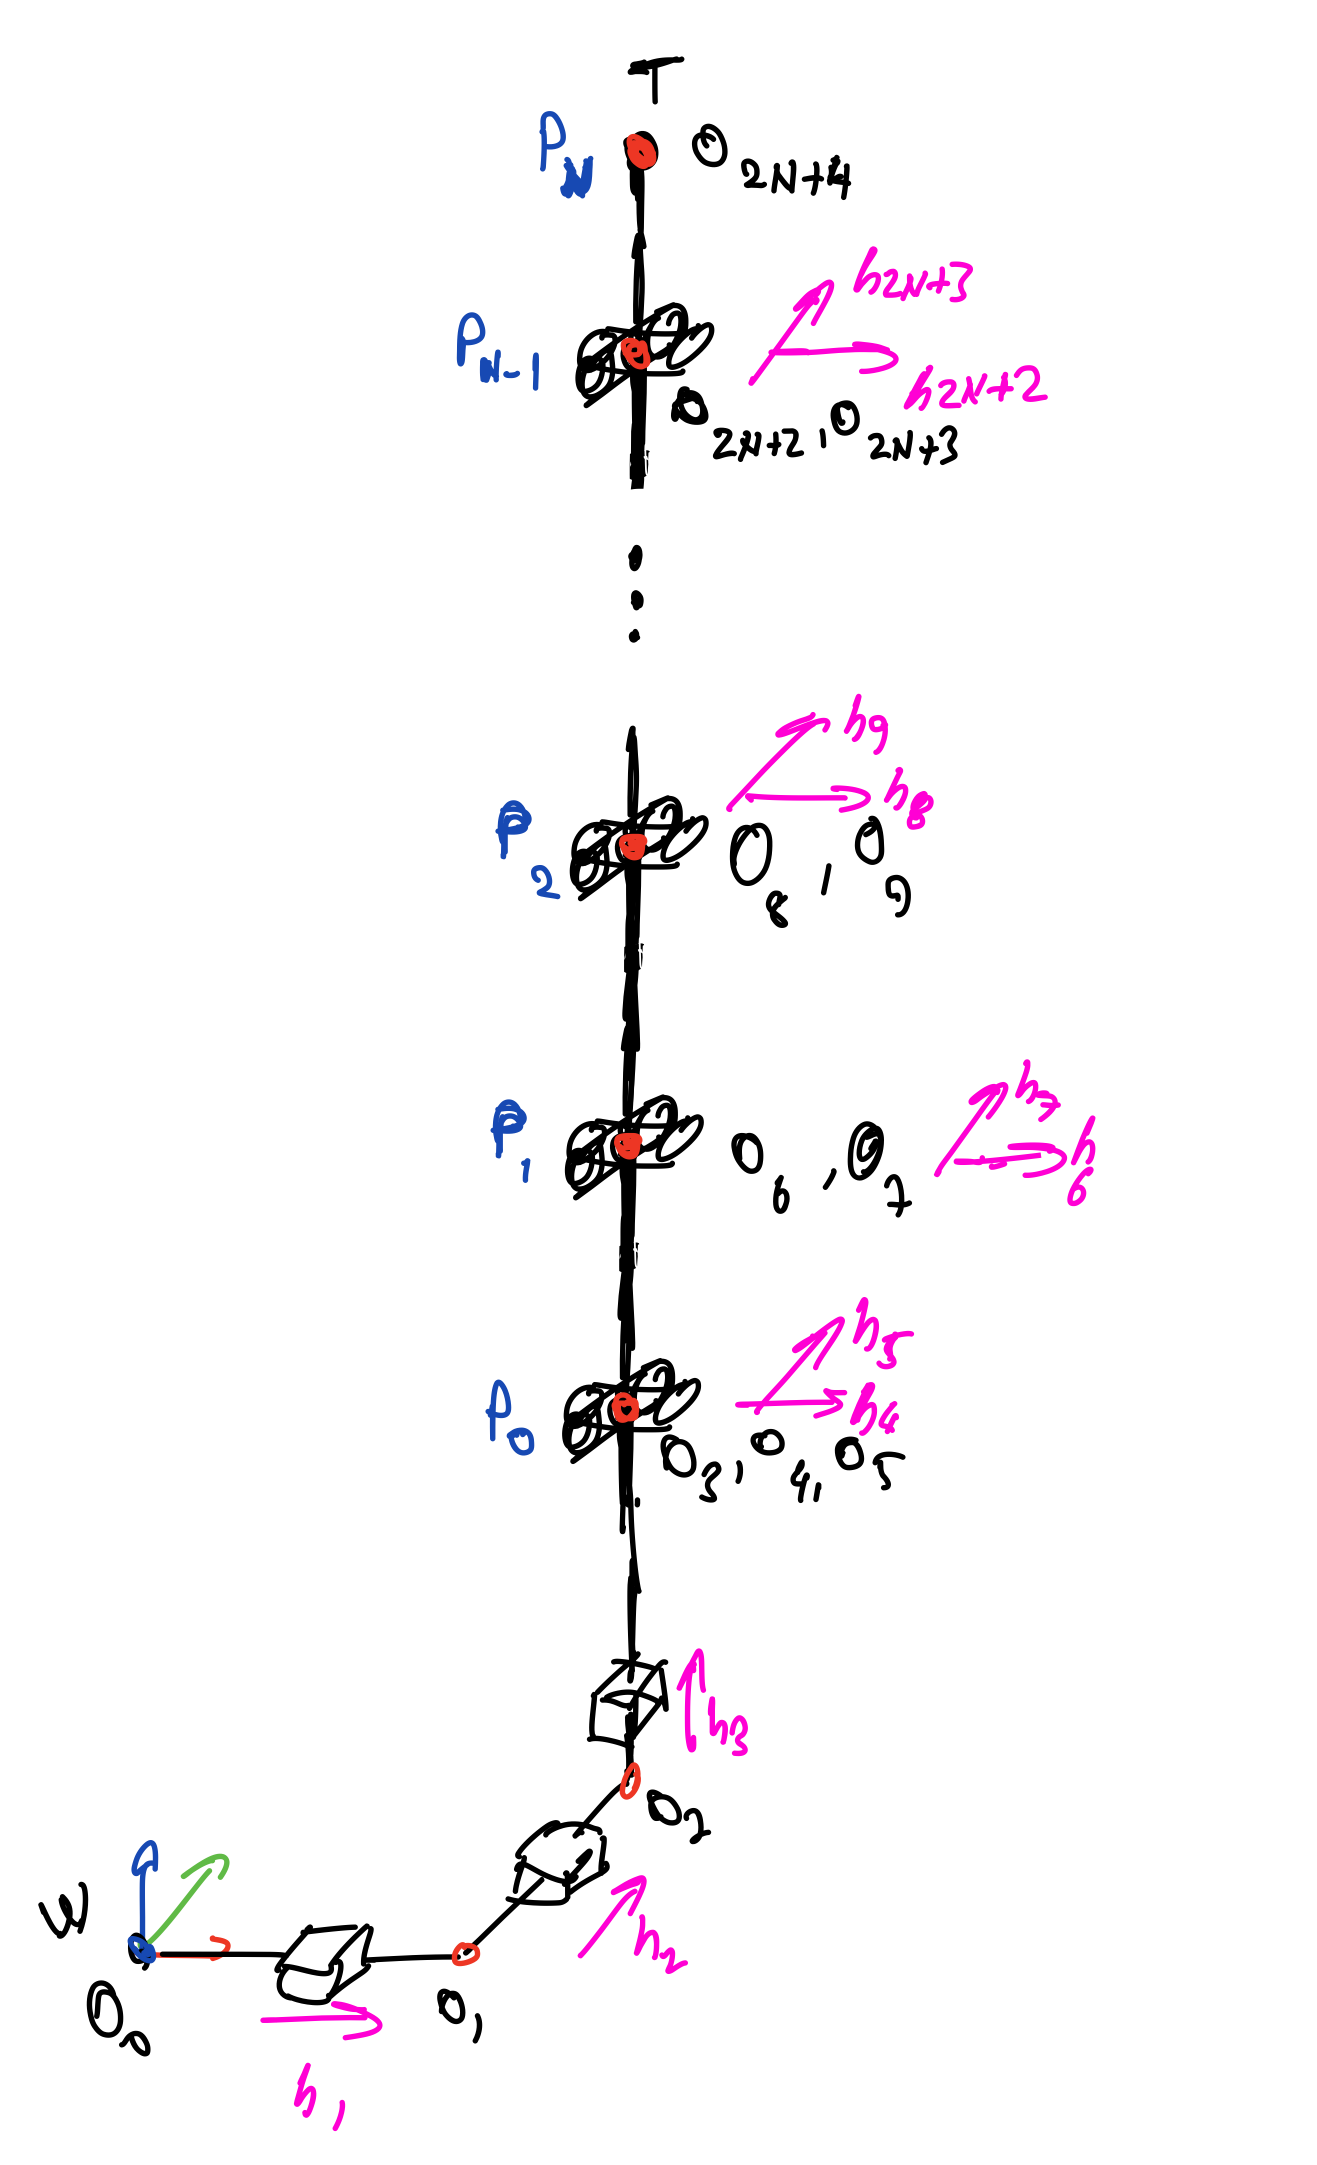 T
P_N O_{2N+4}
h_{2N+3}
P_{N-1} h_{2N+2}
O_{2N+2}, O_{2N+3}
h_9
P_2 h_8
O_8, O_9
h_7
P_1 O_6, O_7 h_6
h_5
P_0 h_4
O_3, O_4, O_5
h_3
O_2
W h_2
O_0 O_1
h_1